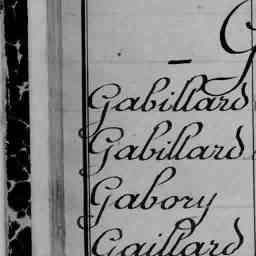 G
Gabillard
Gabillard
Gabory
Gaillard